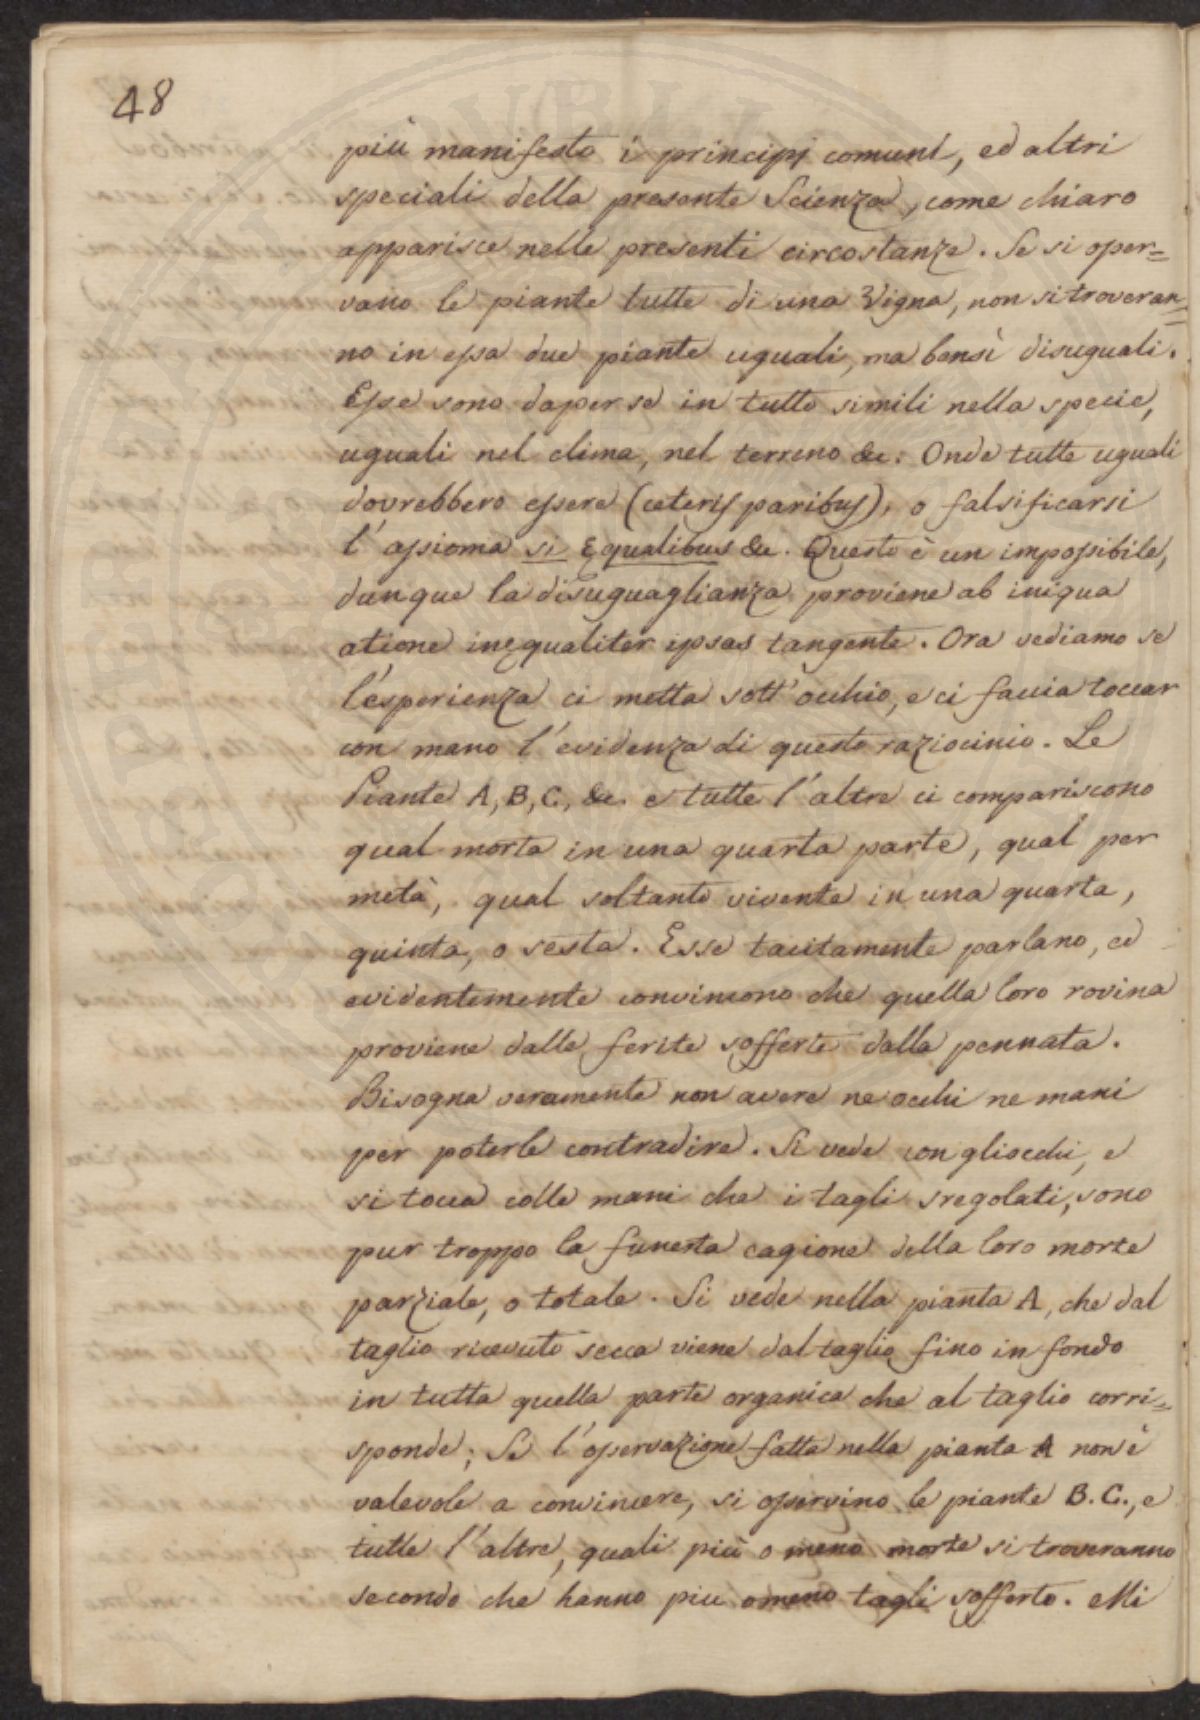 48
più manifesto i principj comuni, ed altri
speciali della presente Scienza, come chiaro
apparisce nelle presenti circostanze. Se si oper=
vano le piante tutte di una Vigna, non si troveran=
no in essa due piante uguali, ma bensì disuguali.
Esse sono daper se in tutto simili nella specie,
uguali nel clima, nel terreno &c: Onde tutte uguali
dovrebbero essere (cęteris paribus), o falsificarsi
l'assioma si ęqualibus &c. Questo è un impossibile,
dunque la disuguaglianza proviene ab iniqua
atione inęqualiter ipsas tangente. Ora vediamo se
l'esperienza ci metta sott'occhio, e ci faccia toccar
con mano l'evidenza di questo raziocinio. Le
Piante A, B, C, &c. e tutte l'altre ci compariscono
qual morta in una quarta parte, qual per
metà, qual soltanto vivente in una quarta,
quinta, o sesta. Esse tacitamente parlano, ed
evidentemente convincono che quella loro rovina
proviene dalle ferite sofferte dalla pennata.
Bisogna veramente non avere ne occhi ne mani
per poterle contradire. Si vede con gliocchi, e
si tocca colle mani che i tagli sregolati, sono
pur troppo la funesta cagione della loro morte
parziale, o totale. Si vede nella pianta A, che dal
taglio ricevuto secca viene dal taglio fino in fondo
in tutta quella parte organica che al taglio corri=
sponde; Se l'osservazione fatta nella pianta A non è
valevole a convincere, si osservino le piante B. C., e
tutte l'altre, quali più o meno morte si troveranno
secondo che hanno piu o meno tagli sofferto. Mi